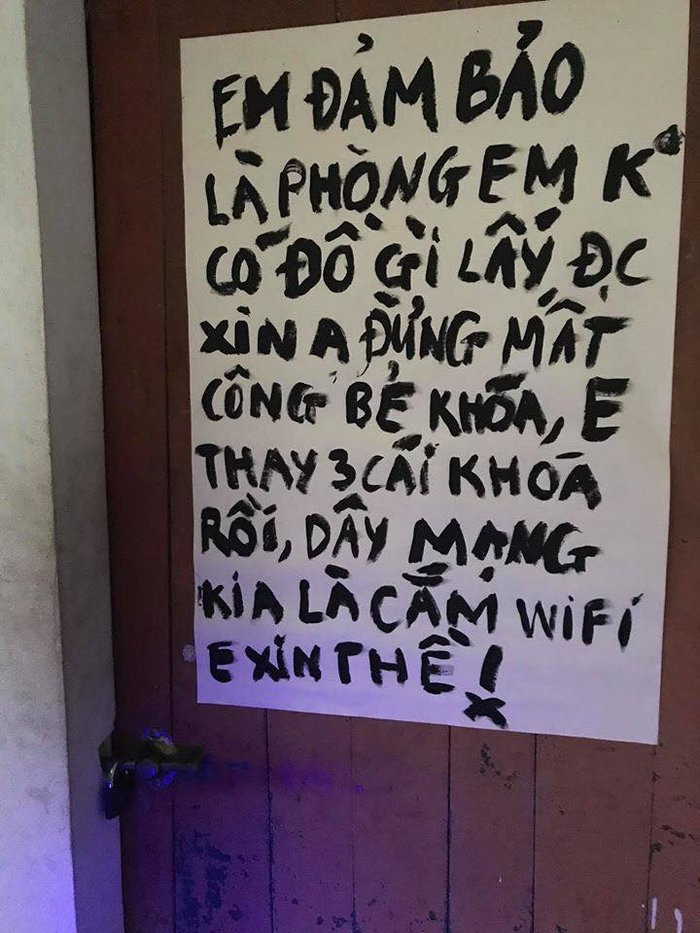 EM ĐẢM BẢO
LÀ PHÒNG EM K°
CÓ ĐỒ GÌ LẤY ĐC
XIN A ĐỪNG MẤT
CÔNG BẺ KHÓA, E
THAY 3 CÁI KHOÁ
RỒI, DÂY MẠNG
KIA LÀ CẮM WIFI
E XIN THỀ!